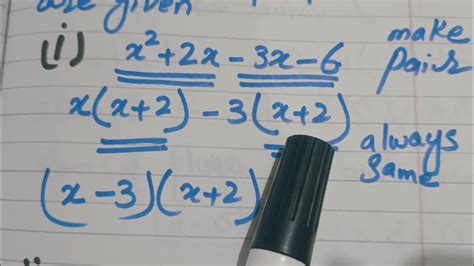 are given
(i) x² + 2x - 3x - 6 make pairs
x(x+2) - 3(x+2) always same
(x-3)(x+2)